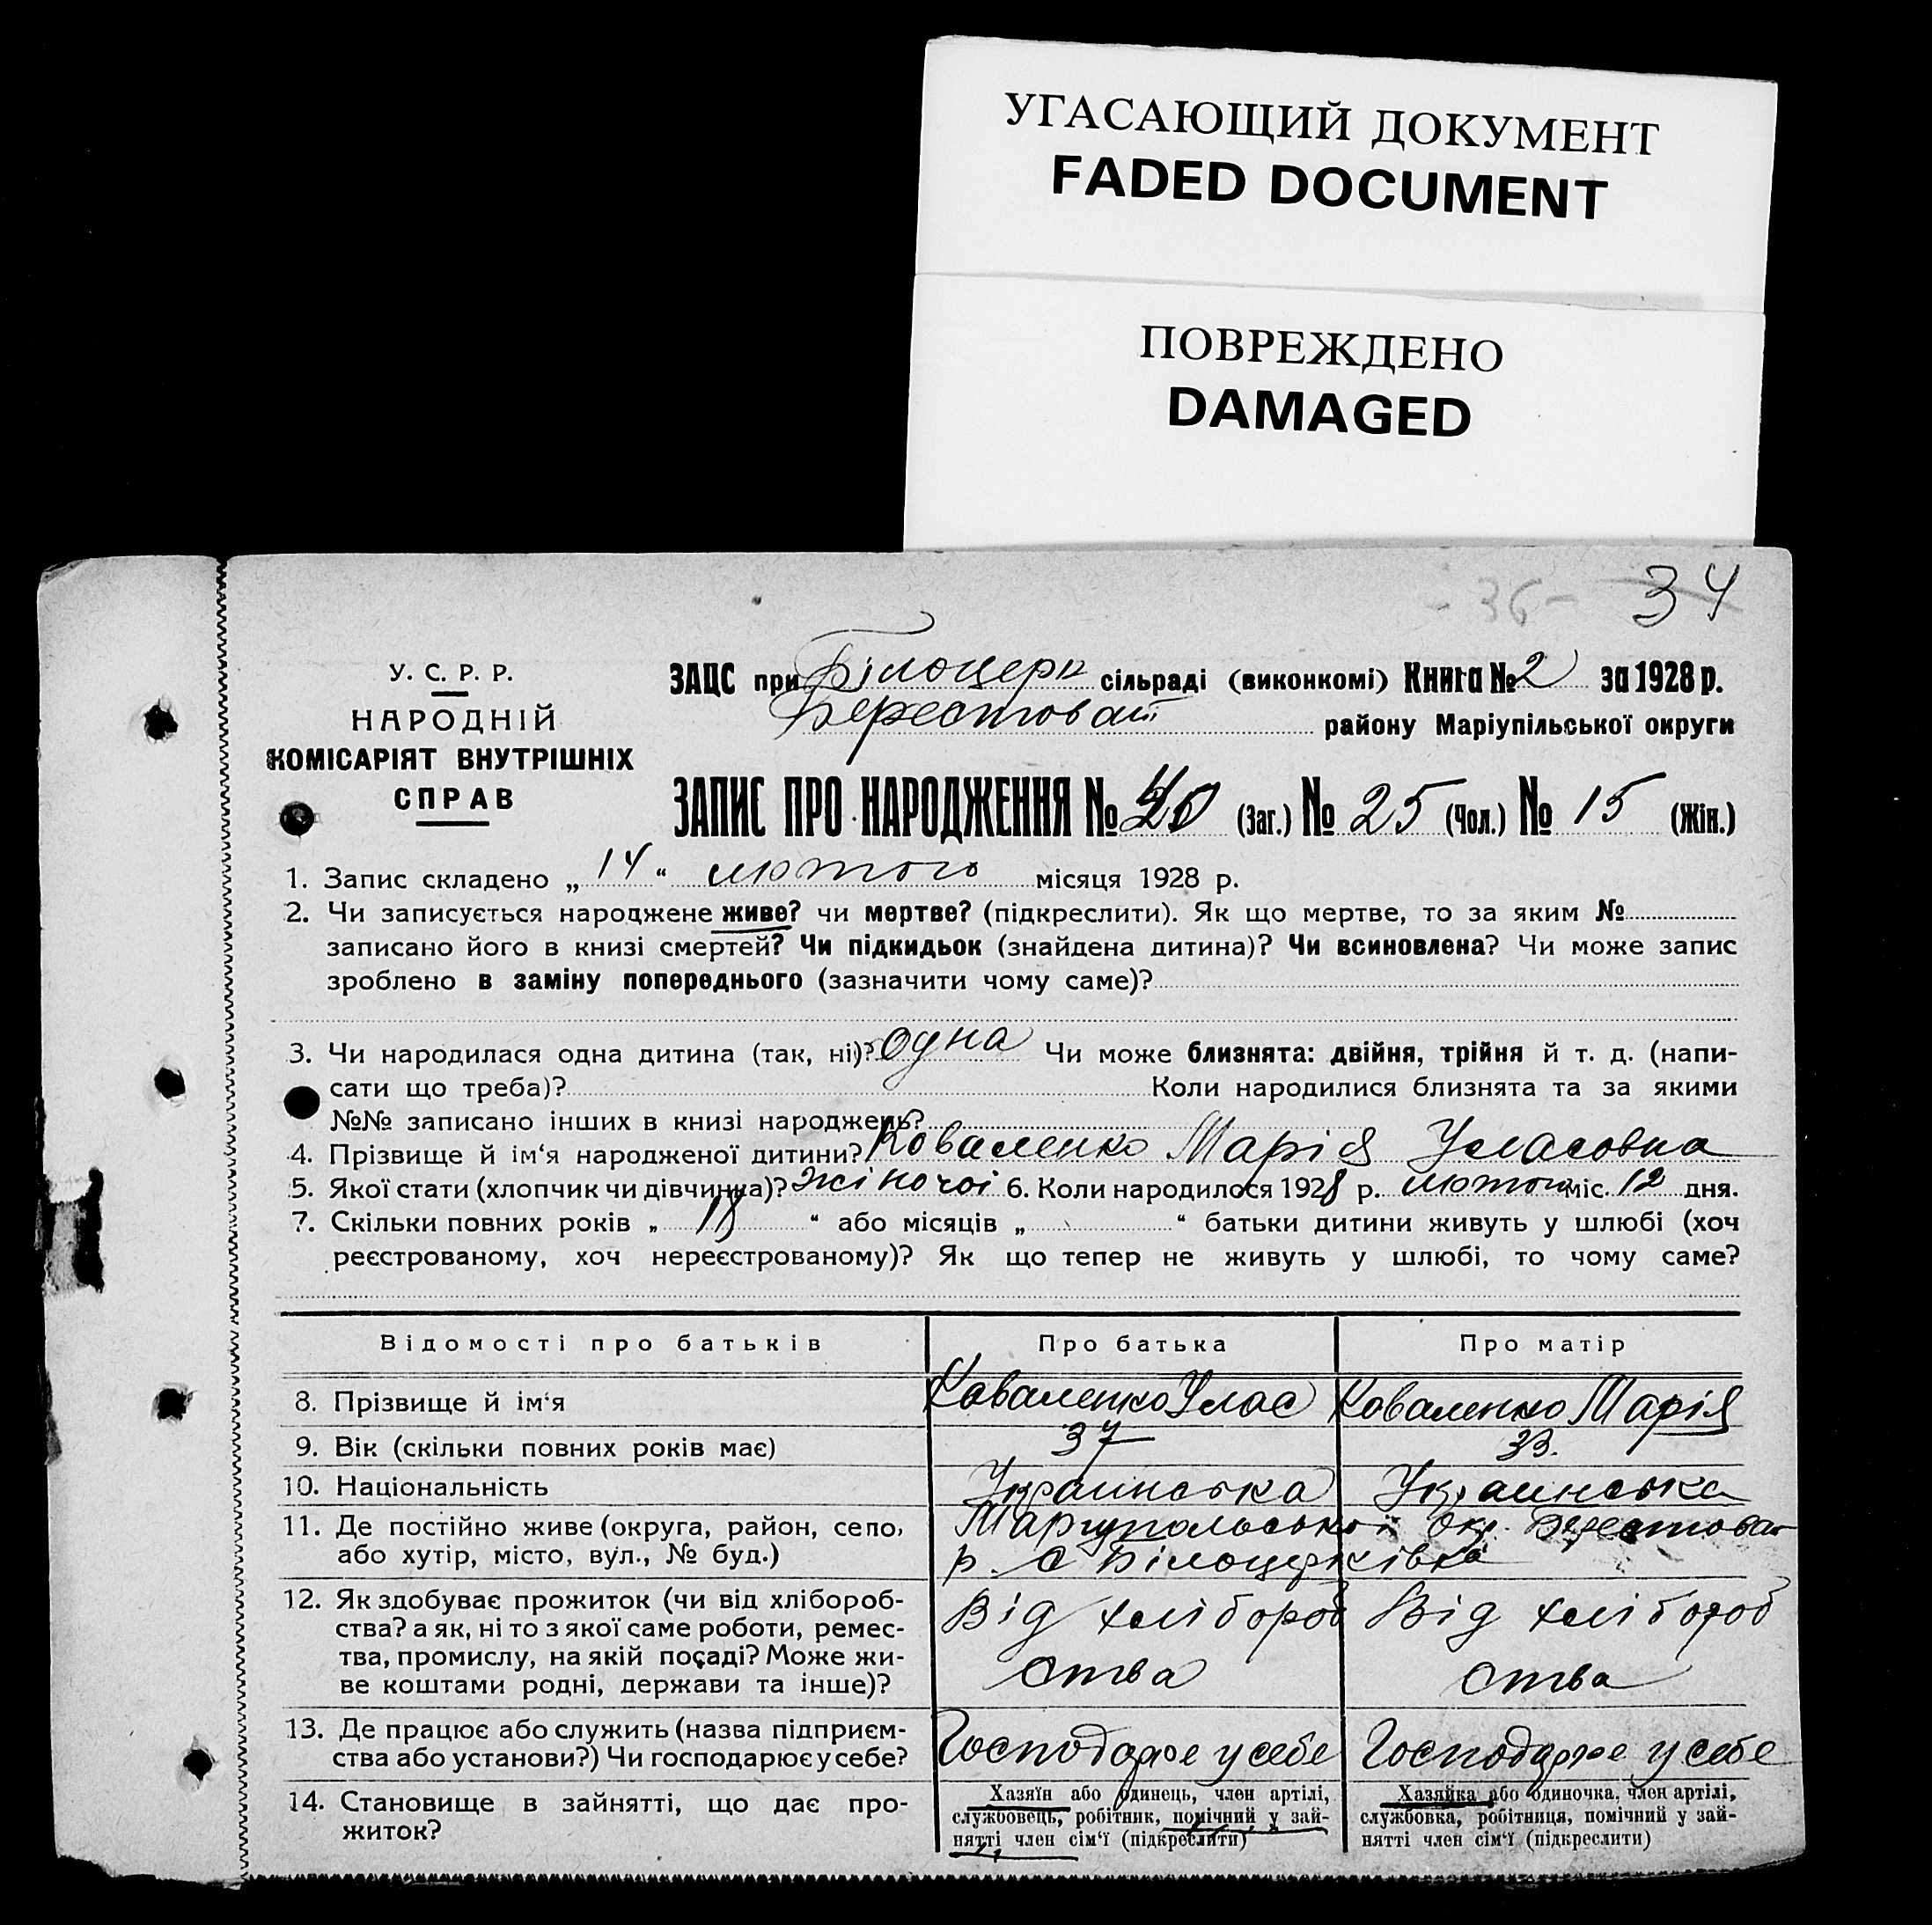 УГАСАЮЩИЙ ДОКУМЕНТ
FADED DOCUMENT
ПОВРЕЖДЕНО
DAMAGED
- 36 - 34
У. С. Р. Р.
НАРОДНІЙ
КОМІСАРІЯТ ВНУТРІШНІХ
СПРАВ
ЗАЦС при Білоцерк сільраді (виконкомі) Книга № 2 за 1928 р.
Берестоват району Маріупільської округи
ЗАПИС ПРО НАРОДЖЕННЯ № 40 (Заг.) № 25 (Чол.) № 15 (Жін.)
1. Запис складено „ 14 “ лютого місяця 1928 р.
2. Чи записується народжене живе? чи мертве? (підкреслити). Як що мертве, то за яким №
записано його в книзі смертей? Чи підкидьок (знайдена дитина)? Чи всиновлена? Чи може запис
зроблено в заміну попереднього (зазначити чому саме)?
3. Чи народилася одна дитина (так, ні)? одна Чи може близнята: двійня, трійня й т. д. (напи-
сати що треба)? Коли народилися близнята та за якими
№№ записано інших в книзі народжень?
4. Прізвище й ім‘я народженої дитини? Коваленко Марія Уласовна
5. Якої стати (хлопчик чи дівчинка)? жіночої 6. Коли народилося 1928 р. лютого міс. 12 дня.
7. Скільки повних років „ “ або місяців „ “ батьки дитини живуть у шлюбі (хоч
реєстрованому, хоч нереєстрованому)? Як що тепер не живуть у шлюбі, то чому саме?
Відомості про батьків Про батька Про матір
8. Прізвище й ім‘я Коваленко Улас Коваленко Марія
9. Вік (скільки повних років має) 37 33.
10. Національність Украинська Украинська
11. Де постійно живе (округа, район, село, Маріупольської окр. Берестоват
або хутір, місто, вул., № буд.) р. с Білоцерківка
12. Як здобуває прожиток (чи від хлібороб- Від хлібороб Від хлібороб
ства? а як, ні то з якої саме роботи, ремес- ства ства
тва, промислу, на якій посаді? Може жи-
ве коштами родні, держави та інше)?
13. Де працює або служить (назва підприєм- Господарює у себе Господарює у себе
ства або установи?) Чи господарює у себе?
14. Становище в зайнятті, що дає про- Хазяїн або одинець, член артілі, Хазяйка або одиночка, член артілі,
житок? службовець, робітник, помічний у зай- службовка, робітниця, помічний у зай-
нятті член сім‘ї (підкреслити) нятті член сім‘ї (підкреслити)